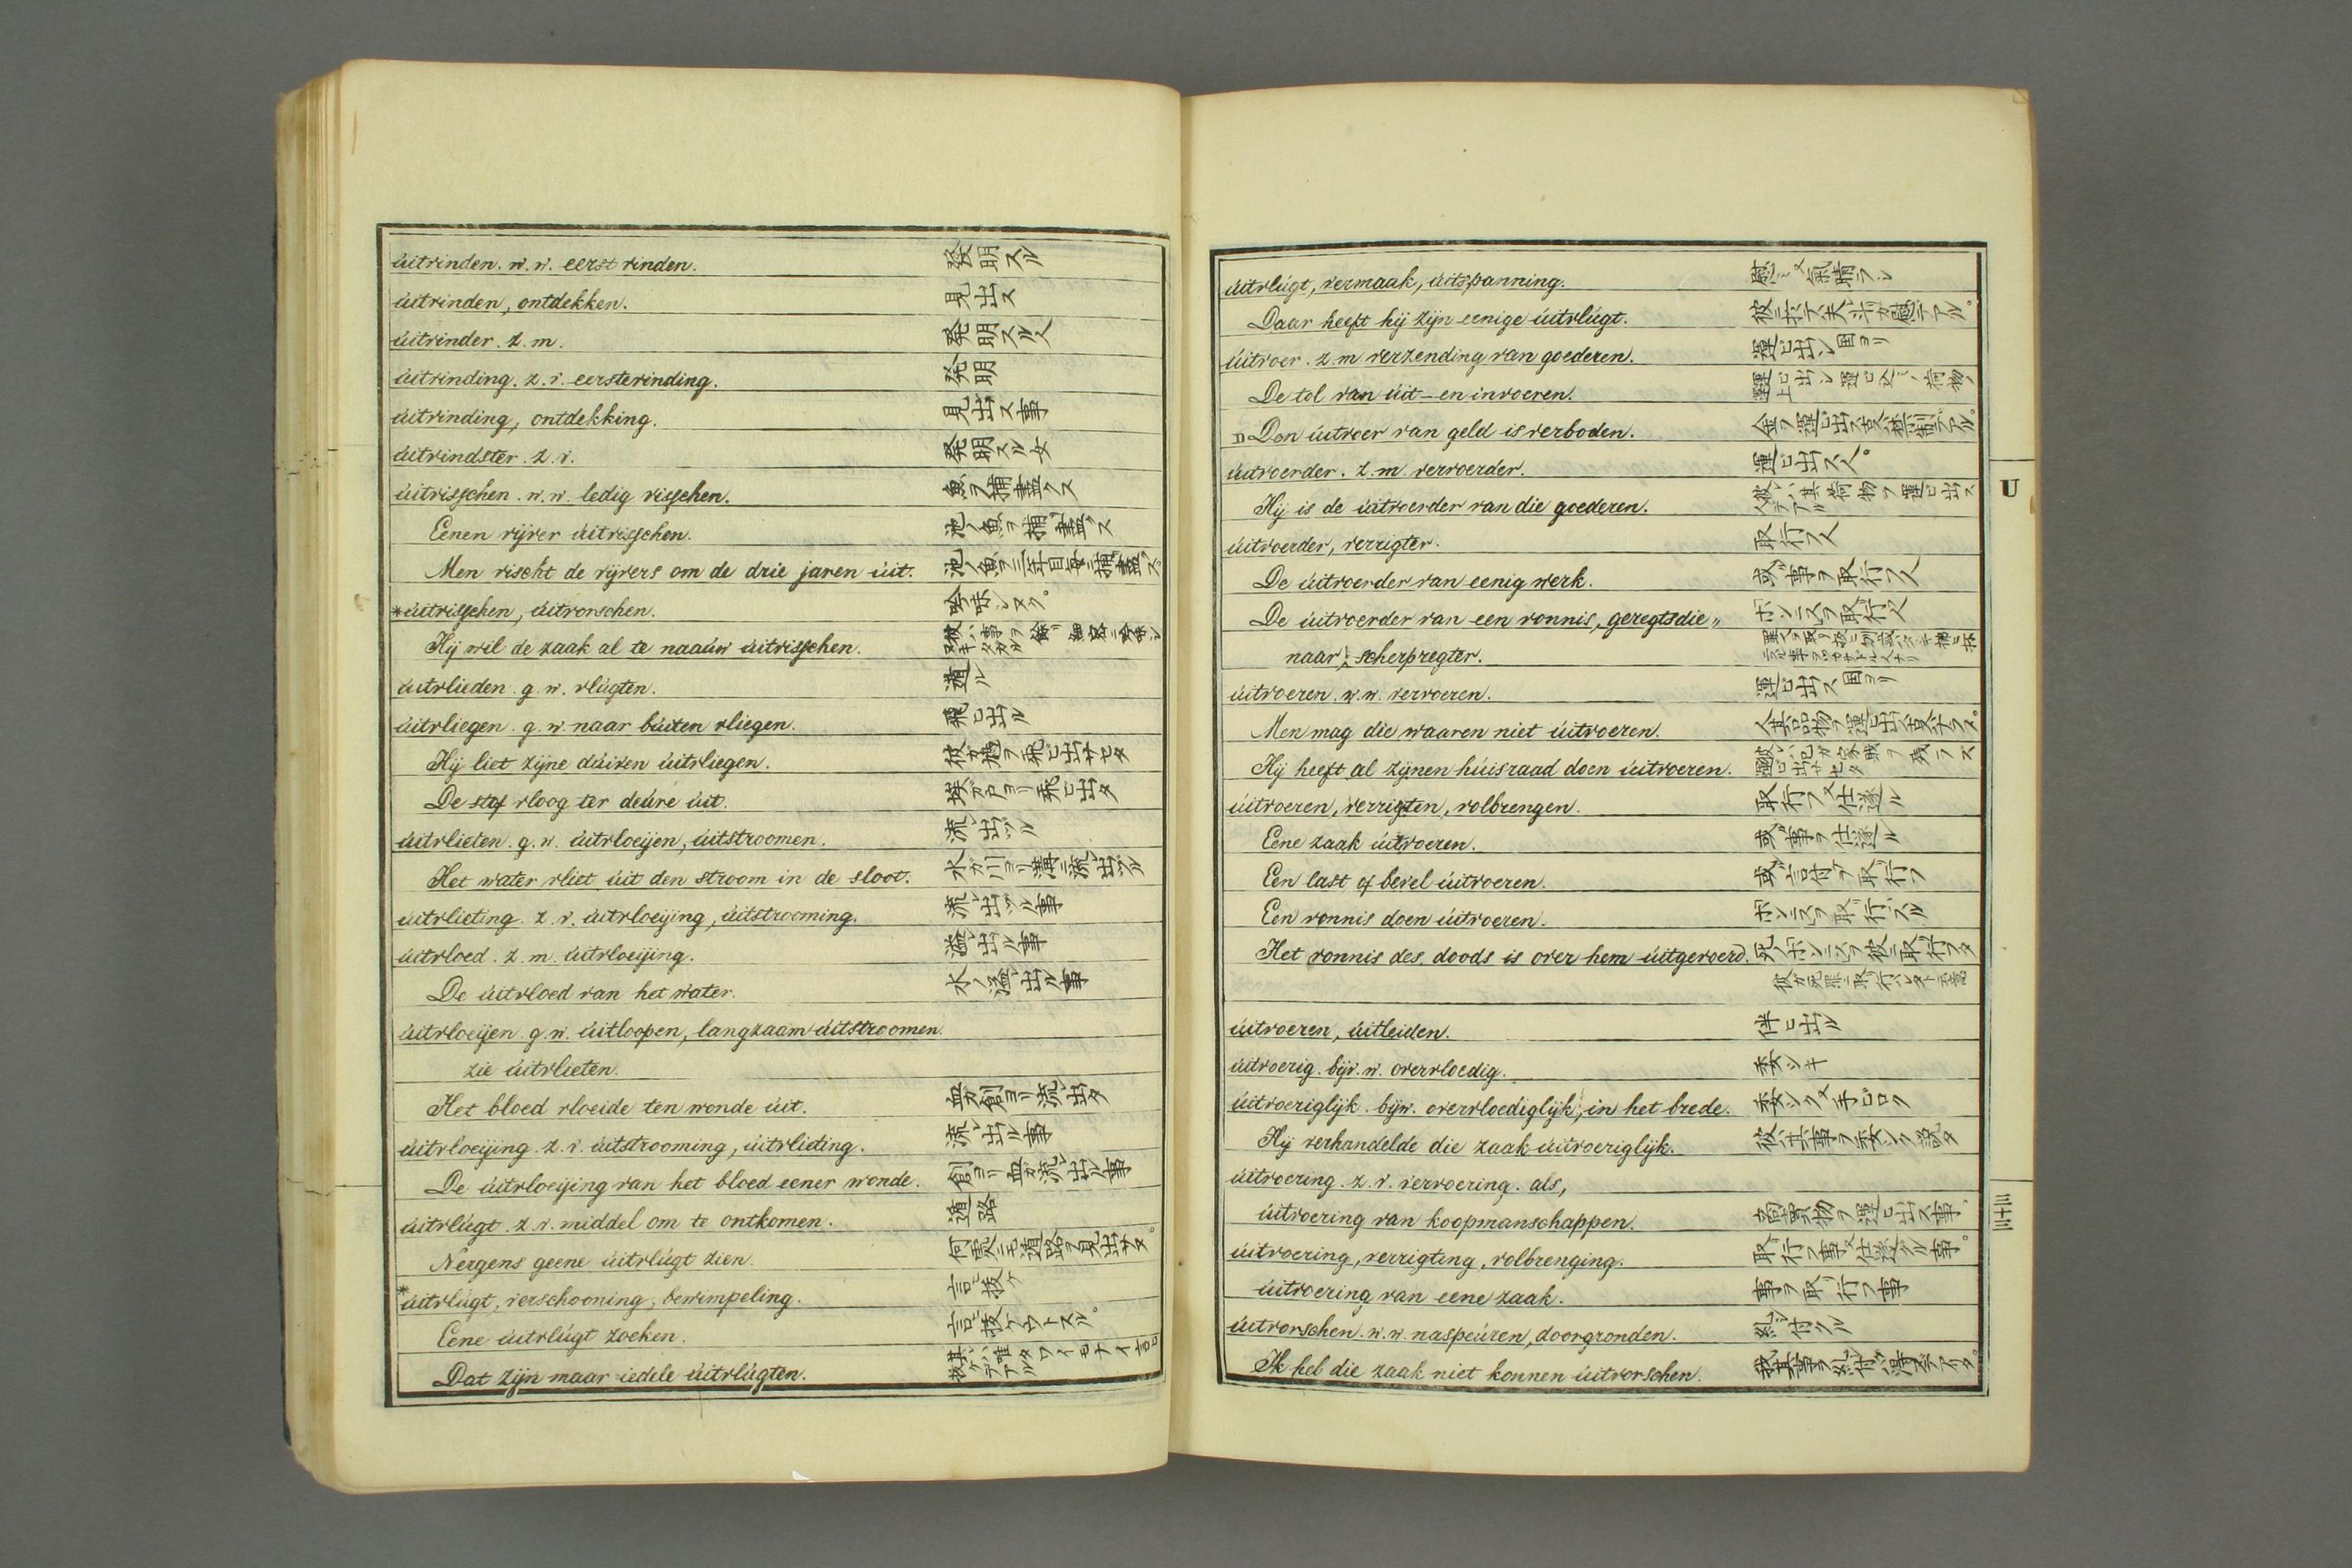 úitvinden. w. w. eerst vinden. 發明スル
úitvinden, ontdekken. 見出ス
úitvinder. z. m. 発明スル人
úitvinding. z. v. eerstevinding. 発明
úitvinding, ontdekking. 見出ス事
úitvindster. z. v. 発明スル女
úitvisschen. w. w. ledig visschen. 魚ヲ捕盡クス
Eenen vijver úitvisschen. 池ノ魚ヲ捕盡クス
Men vischt de vijvers om de drie jaren úit. 池ノ魚ヲ三年目毎ニ捕盡ス
*úitvisschen, úitvorschen. 吟味シヌク。
Hij wil de zaak al te naaúw úitvisschen.
úitvlieden. g. w. vlúgten. 遁ル
úitvliegen. g. w. naar búiten vliegen. 飛ビ出ル
Hij liet zijne dúiven úitvliegen. 彼ガ鳩ヲ飛ビ出サセタ
De stof vloog ter deúre úit. 埃ガ戸ヨリ飛ビ出タ
úitvlieten. g. w. úitvloeijen, úitstroomen. 流レ出ヅル
Het water vliet úit den stroom in de sloot. 水ガ川ヨリ溝ニ流レ出ヅル
úitvlieting. z. v. úitvloeijing, úitstrooming. 流レ出ヅル事
úitvloed. z. m. úitvloeijing. 溢レ出ル事
De úitvloed van het water. 水ノ溢レ出ル事
úitvloeijen. g. w. úitloopen, langzaam úitstroomen.
zie úitvlieten.
Het bloed vloeide ten wonde úit. 血ガ創ヨリ流レ出タ
úitvloeijing. z. v. úitstrooming, úitvlieting. 流レ出ル事
De úitvloeijing van het bloed eener wonde. 創ヨリ血ガ流レ出ル事
úitvlúgt. z. v. middel om te ontkomen. 遁路
Nergens geene úitvlúgt zien. 何處ニモ遁路ヲ見出サヌ。
*úitvlúgt, verschooning, bewimpeling. 言抜ケ
Eene úitvlúgt zoeken. 言抜ケウトスル。
Dat zijn maar iedele úitvlúgten.
úitvlúgt, vermaak, úitspanning.
Daar heeft hij zijn eenige úitvlúgt.
úitvoer. z. m verzending van goederen. 運ビ出シ 国ヨリ
De tol van úit-en invoeren.
Den úitvoer van geld is verboden. 金ヲ運ビ出ス事ハ禁制デアル。
úitvoerder. z. m. vervoerder. 運ビ出ス人。
Hij is de úitvoerder van die goederen. 彼ハ其荷物ヲ運ビ出ス人デアル
úitvoerder, verrigter. 取行フ人
De úitvoerder van eenig werk. 或事ヲ取行フ人
De úitvoerder van een vonnis, geregtsdie〃 ホンニスヲ取行人
naar, scherpregter.
úitvoeren. w. w. vervoeren. 運ビ出ス 国ヨリ
Men mag die waaren niet úitvoeren.
Hij heeft al zijnen húisraad doen úitvoeren.
úitvoeren, verrigten, volbrengen. 取行フ又仕遂ル
Eene zaak úitvoeren. 或事ヲ仕遂ル
Een last of bevel úitvoeren. 或言付ヲ取行フ
Een vonnis doen úitvoeren. ホンニスヲ取行スル
Het vonnis des doods is over hem úitgevoerd. 死ノホンニスヲ彼ニ取行フタ
úitvoeren, úitleiden. 伴ヒ出ル
úitvoerig. bijv. w. overvloedig. 委シキ
úitvoeriglijk. bijw. overvloediglijk, in het brede. 委シク又手ビロク
Hij verhandelde die zaak úitvoeriglijk. 彼ハ其事ヲ委シク説タ
úitvoering. z. v. vervoering. als,
úitvoering van koopmanschappen. 商賣物ヲ運ビ出ス事
úitvoering, verrigting, volbrenging. 取行フ事又仕遂グル事。
úitvoering van eene zaak. 事ヲ取行フ事
úitvorschen. w. w. naspeúren, doorgronden. 糺シ付クル
Ik heb die zaak niet konnen úitvorschen.
U
三十三